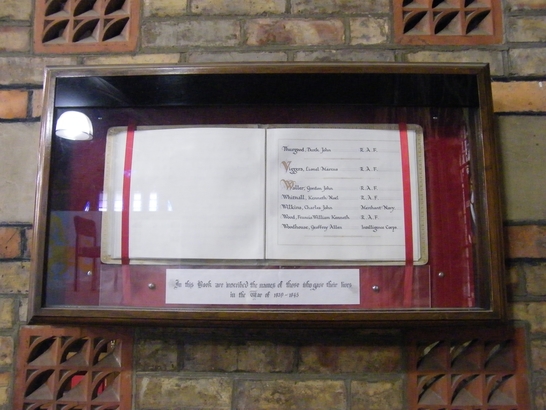 Thurgood, John R.A.F.
Viggers, Lionel Maurice R.A.F.
Waller, Gordon John R.A.F.
Whitnall, Kenneth Noel R.A.F.
Wilkins, Charles John Merchant Navy
Wood, Dennis William Kenneth R.A.F.
Woodhouse, Geoffrey Allen Intelligence Corps
In this Book are inscribed the names of those who gave their lives
in the War of 1939-1945